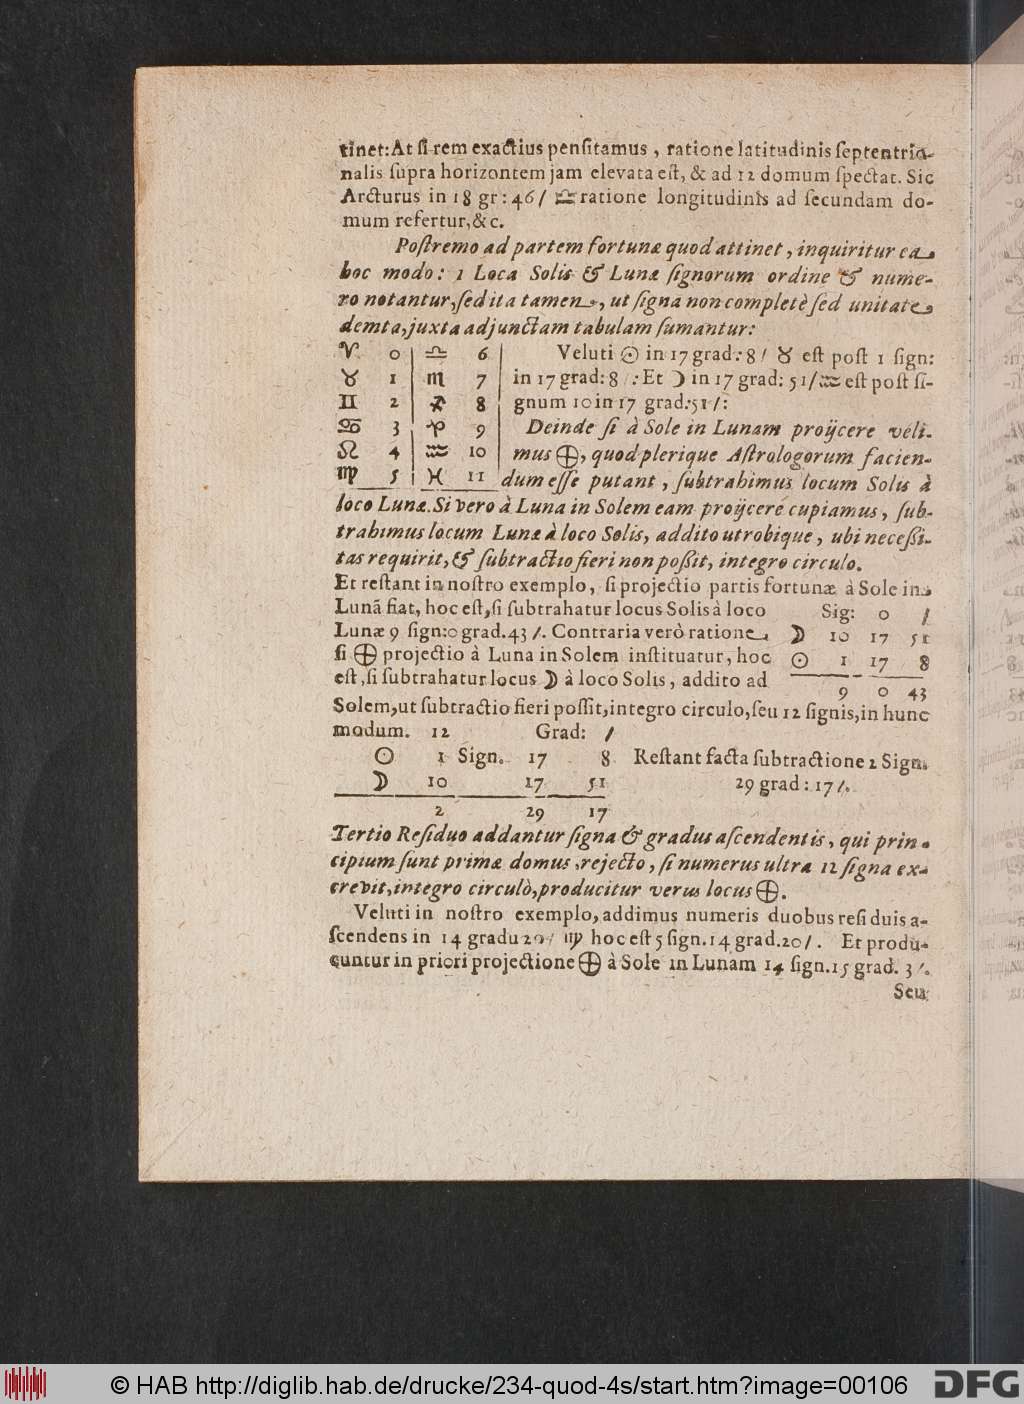 tinet: At ſi rem exactius penſitamus, ratione latitudinis ſeptentrio-
nalis ſupra horizontem jam elevata eſt, & ad 12 domum ſpectat. Sic
Arcturus in 18 gr: 46/ ♎ ratione longitudinis ad ſecundam do-
mum refertur, &c.
Poſtremo ad partem fortunæ quod attinet, inquiritur ea
hoc modo: 1 Loca Solis & Lunæ ſignorum ordine & nume-
ro notantur, ſed ita tamen, ut ſigna non completè ſed unitate
demta, juxta adjunctam tabulam ſumantur:
♈ 0 | ♎ 6 | Veluti ☉ in 17 grad: 8/ ♉ eſt poſt 1 ſign:
♉ 1 | ♏ 7 | in 17 grad: 8 /: Et ☽ in 17 grad: 51/ ♒ eſt poſt ſi-
♊ 2 | ♐ 8 | gnum 10 in 17 grad: 51/:
♋ 3 | ♑ 9 | Deinde ſi à Sole in Lunam proijcere veli-
♌ 4 | ♒ 10 | mus ⊕, quod plerique Aſtrologorum facien-
♍ 5 | ♓ 11 dum eſſe putant, ſubtrahimus locum Solis à
loco Lunæ. Si vero à Luna in Solem eam proijcere cupiamus, ſub-
trahimus locum Lunæ à loco Solis, addito utrobique, ubi neceſſi-
tas requirit, & ſubtractio fieri non poſſit, integro circulo.
Et reſtant in noſtro exemplo, ſi projectio partis fortunæ à Sole in
Lunã fiat, hoc eſt, ſi ſubtrahatur locus Solis à loco Sig: 0 /
Lunæ 9 ſign: 0 grad. 43 /. Contraria verò ratione, ☽ 10 17 51
ſi ⊕ projectio à Luna in Solem inſtituatur, hoc ☉ 1 17 8
eſt, ſi ſubtrahatur locus ☽ à loco Solis, addito ad 9 0 43
Solem, ut ſubtractio fieri poſſit, integro circulo, ſeu 12 ſignis, in hunc
modum. 12 Grad: /
☉ 1 Sign. 17 8 Reſtant facta ſubtractione 2 Sign.
☽ 10 17 51 29 grad: 17/.
2 29 17
Tertio Reſiduo addantur ſigna & gradus aſcendentis, qui prin-
cipium ſunt primæ domus, rejecto, ſi numerus ultra 12 ſigna ex-
crevit, integro circulò, producitur verus locus ⊕.
Veluti in noſtro exemplo, addimus numeris duobus reſiduis a-
ſcendens in 14 gradu 20/ ♍ hoc eſt 5 ſign. 14 grad. 20/. Et produ-
cuntur in priori projectione ⊕ à Sole in Lunam 14 ſign. 15 grad. 3/.
Seu
© HAB http://diglib.hab.de/drucke/234-quod-4s/start.htm?image=00106
DFG